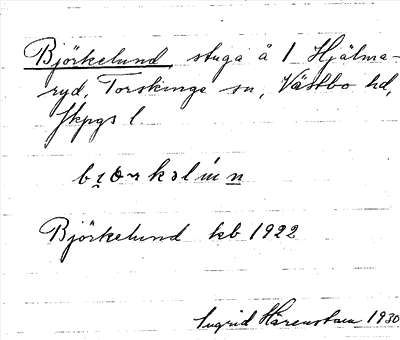 Björkelund, stuga å 1 Hjälma-
ryd, Torskinge sn, Västbo hd,
Jkpgs l.
Björkelund kb 1922
Ingrid Härenstam 1930